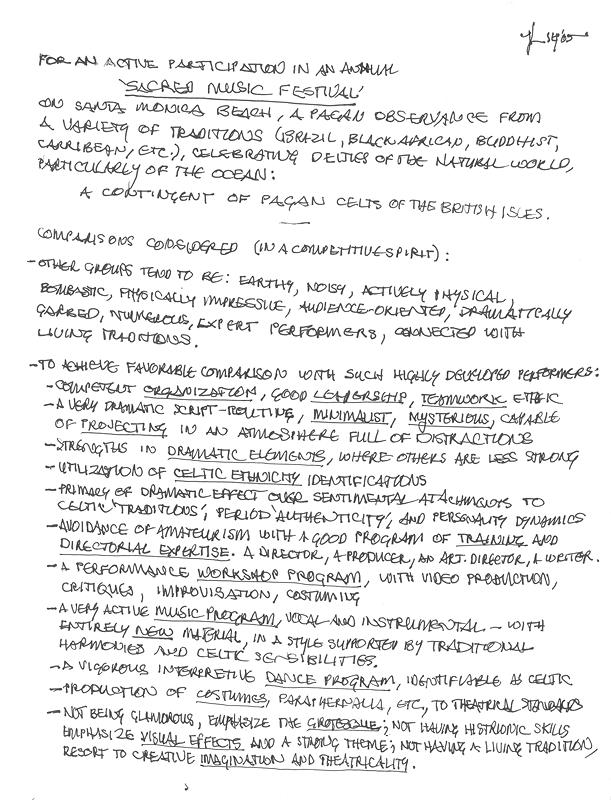 FOR AN ACTIVE PARTICIPATION IN AN ANNUAL
'SACRED MUSIC FESTIVAL'
ON SANTA MONICA BEACH, A PAGAN OBSERVANCE FROM
A VARIETY OF TRADITIONS (BRAZIL, BLACK AFRICAN, BUDDHIST,
CARRIBEAN, ETC.), CELEBRATING DEITIES OF THE NATURAL WORLD,
PARTICULARLY OF THE OCEAN:
A CONTINGENT OF PAGAN CELTS OF THE BRITISH ISLES.
COMPARISONS CONSIDERED (IN A COMPETITIVE SPIRIT):
- OTHER GROUPS TEND TO BE: EARTHY, NOISY, ACTIVELY PHYSICAL,
BOMBASTIC, PHYSICALLY IMPRESSIVE, AUDIENCE-ORIENTED, DRAMATICALLY
GARBED, NUMEROUS, EXPERT PERFORMERS, CONNECTED WITH
LIVING TRADITIONS.
- TO ACHIEVE FAVORABLE COMPARISON WITH SUCH HIGHLY DEVELOPED PERFORMERS:
- COMPETENT ORGANIZATION, GOOD LEADERSHIP, TEAMWORK ETHIC
- A VERY DRAMATIC SCRIPT-ROUTINE, MINIMALIST, MYSTERIOUS, CAPABLE
OF PROJECTING IN AN ATMOSPHERE FULL OF DISTRACTIONS
- STRENGTHS IN DRAMATIC ELEMENTS, WHERE OTHERS ARE LESS STRONG
- UTILIZATION OF CELTIC ETHNICITY IDENTIFICATIONS
- PRIMACY OF DRAMATIC EFFECT OVER SENTIMENTAL ATTACHMENTS TO
CELTIC 'TRADITIONS', PERIOD 'AUTHENTICITY', AND PERSONALITY DYNAMICS
- AVOIDANCE OF AMATEURISM WITH A GOOD PROGRAM OF TRAINING AND
DIRECTORIAL EXPERTISE. A DIRECTOR, A PRODUCER, AN ART. DIRECTOR, A WRITER.
- A PERFORMANCE WORKSHOP PROGRAM, WITH VIDEO PRODUCTION,
CRITIQUES, IMPROVISATION, COSTUMING
- A VERY ACTIVE MUSIC PROGRAM, VOCAL AND INSTRUMENTAL - WITH
ENTIRELY NEW MATERIAL, IN A STYLE SUPPORTED BY TRADITIONAL
HARMONIES AND CELTIC SENSIBILITIES.
- A VIGOROUS INTERPRETIVE DANCE PROGRAM, IDENTIFIABLE AS CELTIC
- PRODUCTION OF COSTUMES, PARAPHERNALIA, ETC., TO THEATRICAL STANDARDS
- NOT BEING GLAMOROUS, EMPHASIZE THE GROTESQUE; NOT HAVING HISTRIONIC SKILLS
EMPHASIZE VISUAL EFFECTS AND A STRONG THEME; NOT HAVING A LIVING TRADITION,
RESORT TO CREATIVE IMAGINATION AND THEATRICALITY.